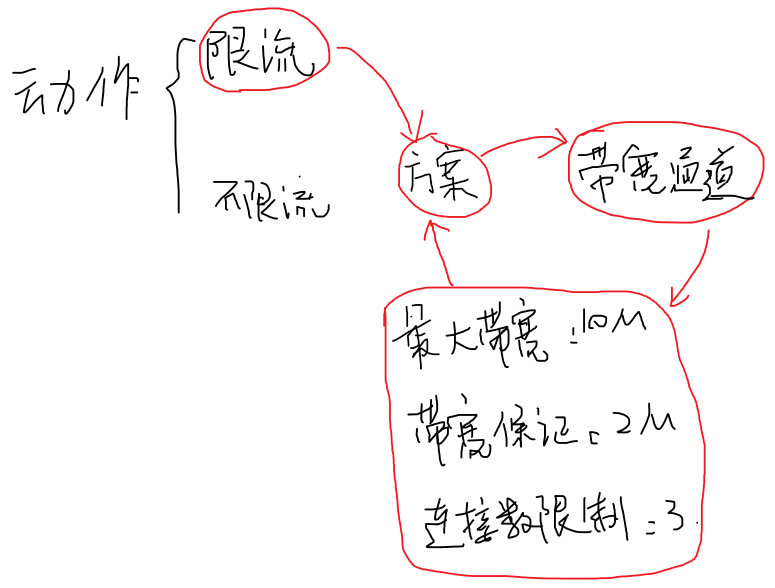 动作
限流
不限流
方案
带宽通道
最大带宽:10M
带宽保证:2M
连接数限制:3.